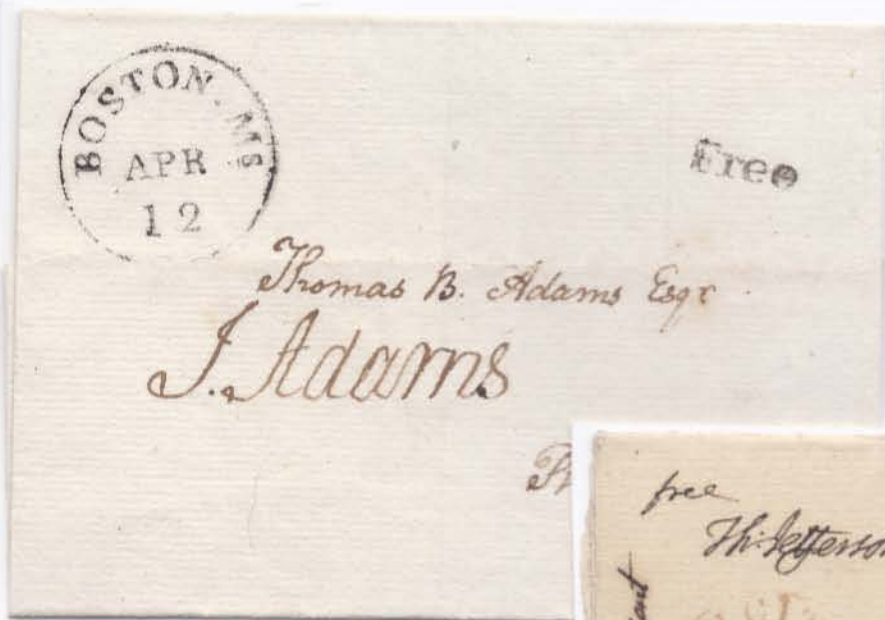 BOSTON. MS
APR
12
Free
Thomas B. Adams Esqr
J. Adams
free
Th: Jefferson